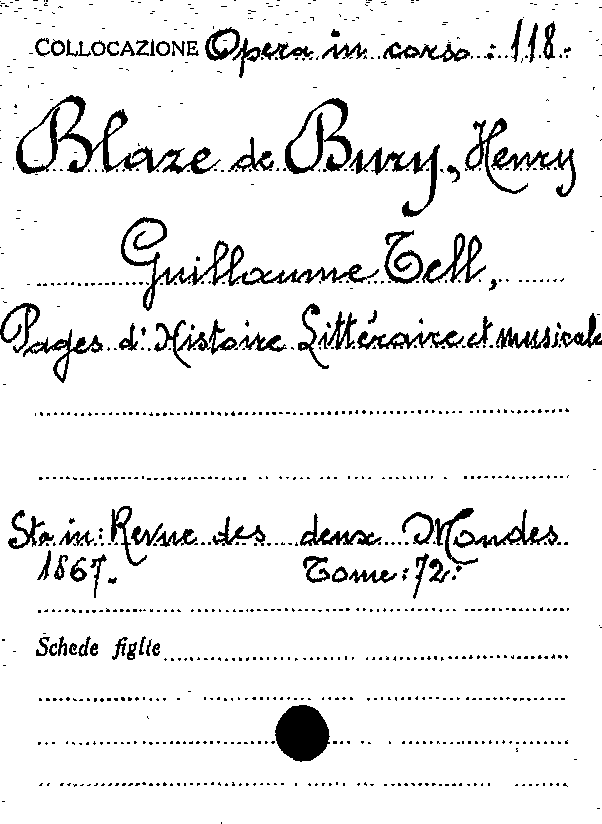 COLLOCAZIONE Opera in corso : 118.
Blaze de Bury, Henry
Guillaume Tell,
Pages d'Histoire Littéraire et musicale
Sta in: Revue des deux Mondes
1867. Tome : 72.
Schede figlie